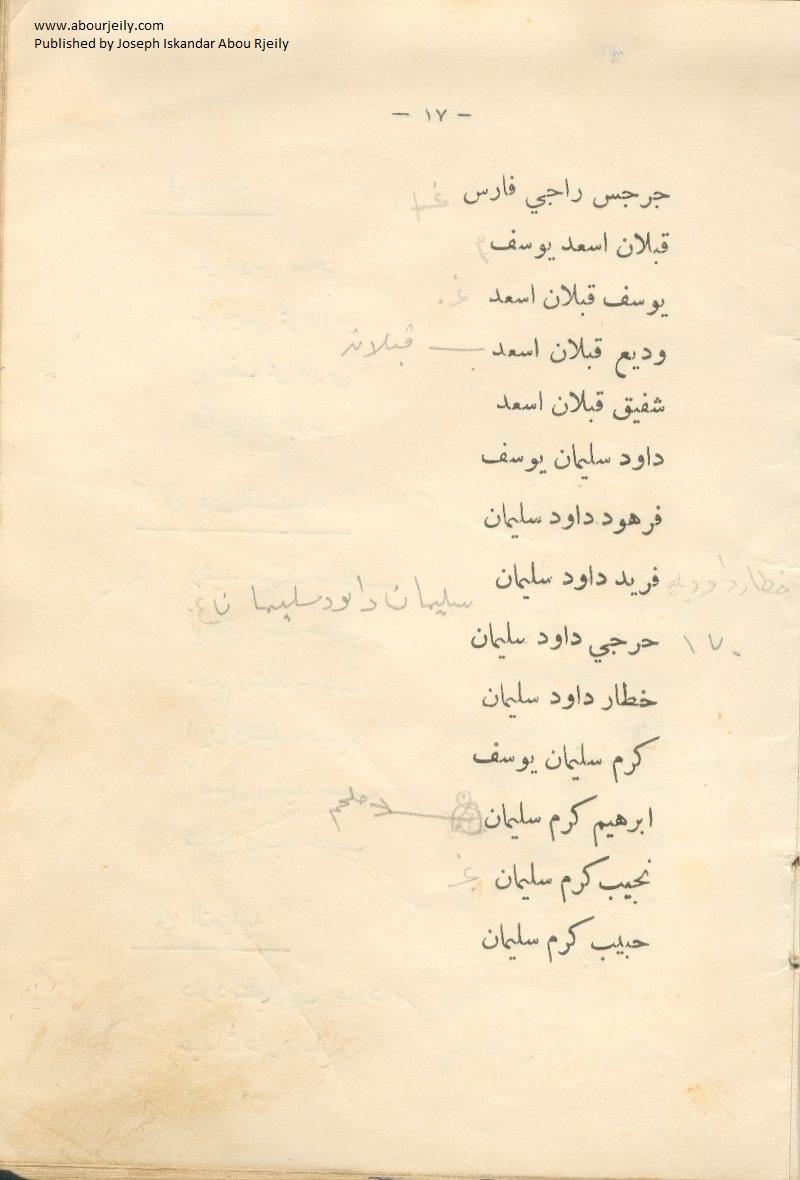 www.abourjeily.com
Published by Joseph Iskandar Abou Rjeily
- ١٧ -
جرجس راجي فارس غ
قبلان اسعد يوسف
يوسف قبلان اسعد غ.
وديع قبلان اسعد — قبلان
شفيق قبلان اسعد
داود سليمان يوسف
فرهود داود سليمان
فريد داود سليمان
سليمان داود سليمان
حرجي داود سليمان
١٧٠
خطار داود سليمان
كرم سليمان يوسف
ابرهيم كرم سليمان — ملحم
نجيب كرم سليمان غ
حبيب كرم سليمان